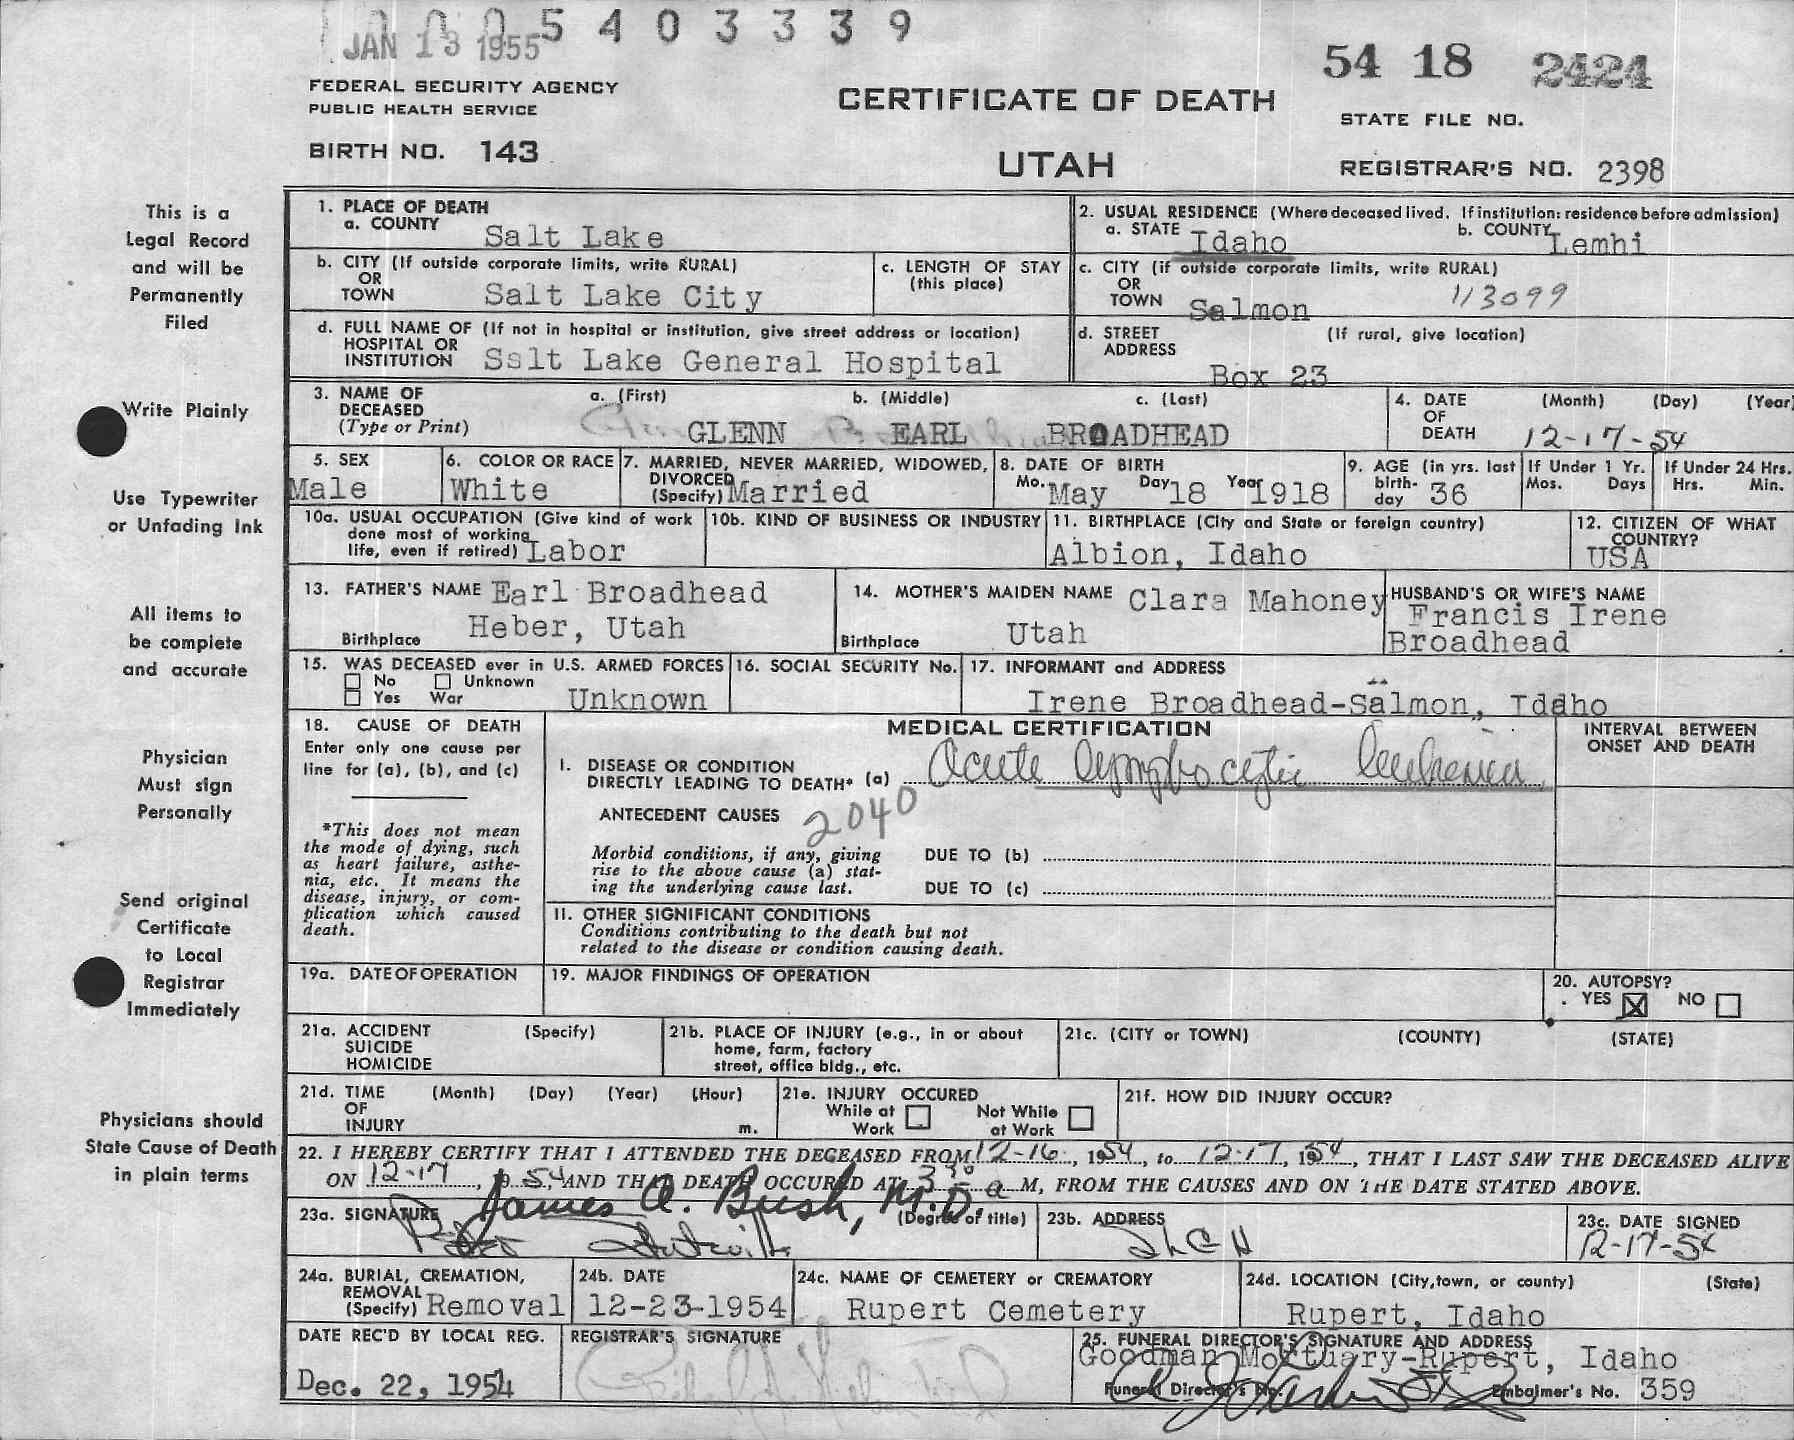 5 4 0 3 3 3 9
JAN 13 1955
54 18 2424
FEDERAL SECURITY AGENCY
PUBLIC HEALTH SERVICE
CERTIFICATE OF DEATH
STATE FILE NO.
BIRTH NO. 143
UTAH
REGISTRAR'S NO. 2398
This is a
Legal Record
and will be
Permanently
Filed
Write Plainly
Use Typewriter
or Unfading Ink
All items to
be complete
and accurate
Physician
Must sign
Personally
Send original
Certificate
to Local
Registrar
Immediately
Physicians should
State Cause of Death
in plain terms
1. PLACE OF DEATH
a. COUNTY Salt Lake
2. USUAL RESIDENCE (Where deceased lived. If institution: residence before admission)
a. STATE Idaho b. COUNTY Lemhi
b. CITY (If outside corporate limits, write RURAL)
OR
TOWN Salt Lake City
c. LENGTH OF STAY
(this place)
c. CITY (if outside corporate limits, write RURAL)
OR
TOWN Salmon 113099
d. FULL NAME OF (If not in hospital or institution, give street address or location)
HOSPITAL OR
INSTITUTION Sslt Lake General Hospital
d. STREET (If rural, give location)
ADDRESS
Box 23
3. NAME OF a. (First) b. (Middle) c. (Last)
DECEASED
(Type or Print) GLENN EARL BROADHEAD
4. DATE (Month) (Day) (Year)
OF
DEATH 12-17-54
5. SEX
Male
6. COLOR OR RACE
White
7. MARRIED, NEVER MARRIED, WIDOWED,
DIVORCED
(Specify) Married
8. DATE OF BIRTH
Mo. May Day 18 Year 1918
9. AGE (in yrs. last
birth-
day 36
If Under 1 Yr.
Mos. Days
If Under 24 Hrs.
Hrs. Min.
10a. USUAL OCCUPATION (Give kind of work
done most of working
life, even if retired) Labor
10b. KIND OF BUSINESS OR INDUSTRY
11. BIRTHPLACE (City and State or foreign country)
Albion, Idaho
12. CITIZEN OF WHAT
COUNTRY?
USA
13. FATHER'S NAME Earl Broadhead
Birthplace Heber, Utah
14. MOTHER'S MAIDEN NAME Clara Mahoney
Birthplace Utah
HUSBAND'S OR WIFE'S NAME
Francis Irene
Broadhead
15. WAS DECEASED ever in U.S. ARMED FORCES
No Unknown
Yes War Unknown
16. SOCIAL SECURITY No.
17. INFORMANT and ADDRESS
Irene Broadhead-Salmon, Idaho
18. CAUSE OF DEATH
Enter only one cause per
line for (a), (b), and (c)
*This does not mean
the mode of dying, such
as heart failure, asthe-
nia, etc. It means the
disease, injury, or com-
plication which caused
death.
MEDICAL CERTIFICATION
INTERVAL BETWEEN
ONSET AND DEATH
I. DISEASE OR CONDITION
DIRECTLY LEADING TO DEATH* (a) Acute lymphocytic leukemia
ANTECEDENT CAUSES 2040
Morbid conditions, if any, giving
rise to the above cause (a) stat-
ing the underlying cause last.
DUE TO (b)
DUE TO (c)
II. OTHER SIGNIFICANT CONDITIONS
Conditions contributing to the death but not
related to the disease or condition causing death.
19a. DATE OF OPERATION
19. MAJOR FINDINGS OF OPERATION
20. AUTOPSY?
YES X NO
21a. ACCIDENT (Specify)
SUICIDE
HOMICIDE
21b. PLACE OF INJURY (e.g., in or about
home, farm, factory
street, office bldg., etc.
21c. (CITY or TOWN) (COUNTY) (STATE)
21d. TIME (Month) (Day) (Year) (Hour)
OF
INJURY m.
21e. INJURY OCCURED
While at Work Not While at Work
21f. HOW DID INJURY OCCUR?
22. I HEREBY CERTIFY THAT I ATTENDED THE DECEASED FROM 12-16, 1954, to 12-17, 1954, THAT I LAST SAW THE DECEASED ALIVE
ON 12-17, 1954 AND THAT DEATH OCCURED AT 3 30 a M, FROM THE CAUSES AND ON THE DATE STATED ABOVE.
James A. Bush, M.D.
23a. SIGNATURE (Degree of title)
23b. ADDRESS
23c. DATE SIGNED
12-17-54
24a. BURIAL, CREMATION,
REMOVAL
(Specify) Removal
24b. DATE
12-23-1954
24c. NAME OF CEMETERY or CREMATORY
Rupert Cemetery
24d. LOCATION (City, town, or county) (State)
Rupert, Idaho
DATE REC'D BY LOCAL REG.
Dec. 22, 1954
REGISTRAR'S SIGNATURE
25. FUNERAL DIRECTOR'S SIGNATURE AND ADDRESS
Goodman Mortuary-Rupert, Idaho
Funeral Director's No. Embalmer's No. 359